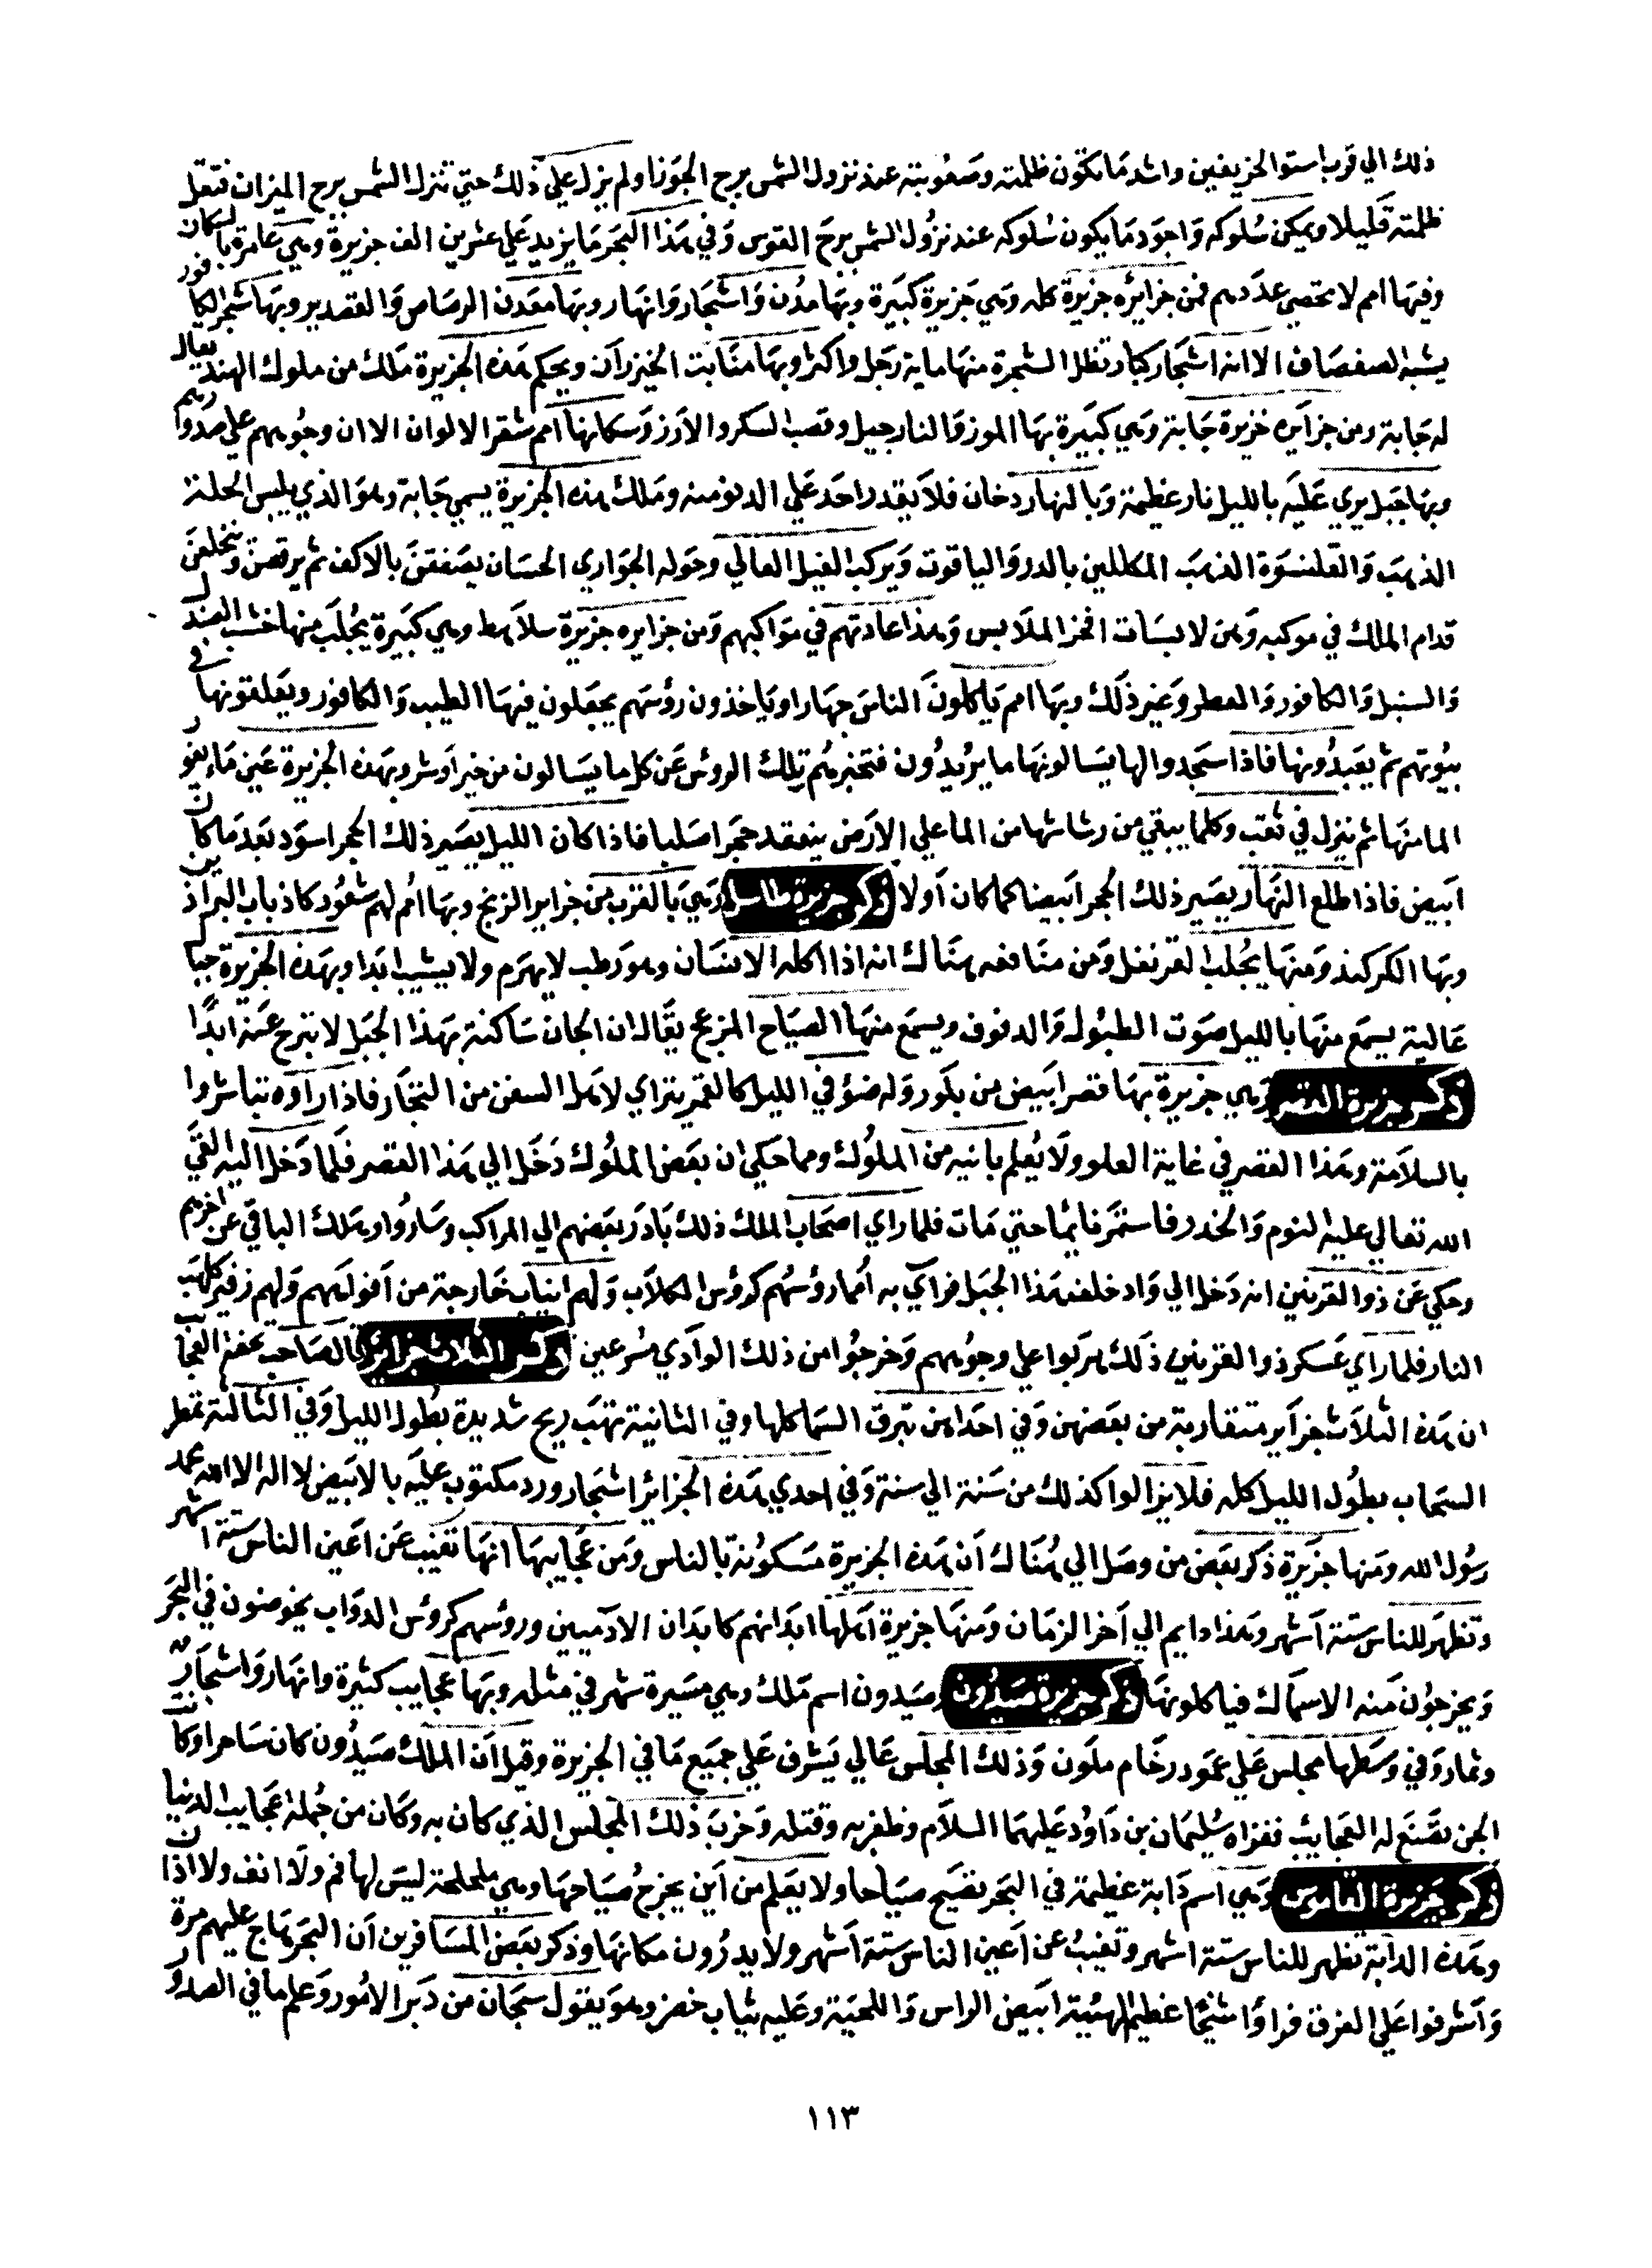 ذلك الي قرب استوا الخريفين واشد ما تكون ظلمته وصعوبته عند نزول الشمس برج الجوزا ولم يزل علي ذلك حتي تنزل الشمس برج الميزان فتقل
ظلمته قليلا ويمكن سلوكه واجود ما يكون سلوكه عند نزول الشمس برج القوس وفي هذا البحر ما يزيد علي عشرين الف جزيرة وهي عامرة بالسكان
وفيها امم لا يحصي عددهم فمن جزائره جزيرة كله وهي جزيرة كبيرة وبها مدن واشجار وانهار وبها معدن الرصاص والقصدير وبها شجر الكافور
يشبه الصفصاف الا انه اشجار كبار تظل الشجرة منها ماية رجل واكثر وبها منابت الخيزران ويحكم هذه الجزيرة ملك من ملوك الهند يقال
له جابة ومن جزايره جزيرة جابة وهي كبيرة بها الموز والنارجيل وقصب السكر والارز وسكانها امم شقر الالوان الا ان وجوههم علي صدورهم
وبها جبل يري عليه بالليل نار عظيمة وبالنهار دخان فلا يقدر احد علي الدنو منه وملك هذه الجزيرة يسمي جابة وهو الذي يلبس الحلة
الذهب والقلنسوة الذهب المكللين بالدر والياقوت ويركب الفيل العالي وحوله الجواري الحسان يصفقن بالاكف ثم يرقصن ويتخلعن
قدام الملك في موكبه وهن لابسات افخر الملابس وهذا عادتهم في مواكبهم ومن جزايره جزيرة سلاهط وهي كبيرة يجلب منها خشب الصندل
والسنبل والكافور والعطر وغير ذلك وبها امم ياكلون الناس جهارا وياخذون رؤسهم يجعلون فيها الطيب والكافور ويعلقونها في
بيوتهم ثم يعبدونها فاذا سجدوا لها يسالونها ما يريدون فتخبرهم تلك الروس عن كل ما يسالون من خير او شر وبهذه الجزيرة عين ماء يفور
الما منها ثم ينزل في ثقب وكلما يبقي من رشاشها من الما علي الارض ينعقد حجرا صلبا فاذا كان الليل يصير ذلك الحجر اسود بعد ما كان
ابيض فاذا طلع النهار يصير ذلك الحجر ابيضا كما كان اولا ذكر جزيرة وهي بالقرب من جزاير الزنج وبها امم لهم شعور كاذناب البراذين
وبها الكركند ومنها يجلب القرنفل ومن منافعه هناك انه اذا اكله الانسان وهو رطب لا يهرم ولا يشيب ابدا وبهذه الجزيرة جبال
عالية يسمع منها بالليل صوت الطبول والدفوف ويسمع منها الصياح المزعج يقال ان الجان ساكنة بهذا الجبل لا تبرح عنه ابدا
ذكر جزيرة القصر وهي جزيرة بها قصر ابيض من بلور وله ضؤ في الليل كالقمر يتراي لاهل السفن من التجار فاذا راوه تباشروا
بالسلامة وهذا القصر في غاية العلو ولا يعلم بانيه من الملوك ومما حكي ان بعض الملوك دخل الي هذا القصر فلما دخل اليه القي
الله تعالي عليه النوم والخدر فاستمر نايما حتي مات فلما راي اصحاب الملك ذلك بادر بعضهم الي المراكب وساروا وهلك الباقي عن اخرهم
وحكي عن ذو القرنين انه دخل الي واد خلف هذا الجبل فراي به امما رؤسهم كرؤس الكلاب ولهم انياب خارجة من افواههم ولهم زفير كلهب
النار فلما راي عسكر ذو القرنين ذلك هربوا علي وجوههم وخرجوا من ذلك الوادي مسرعين ذكر الثلاث جزاير قال صاحب تحفة العجايب
ان هذه الثلاث جزاير متقاربة من بعضهن وفي احداهن تبرق السما كلها وفي الثانية تهب ريح شديدة بطول الليل وفي الثالثة تمطر
السحاب بطول الليل كله فلا يزالوا كذلك من سنة الي سنة وفي احدي هذه الجزائر اشجار ورد مكتوب عليه بالابيض لا اله الا الله محمد
رسول الله ومنها جزيرة ذكر بعض من وصل الي هناك ان هذه الجزيرة مسكونة بالناس ومن عجايبها انها تغيب عن اعين الناس ستة اشهر
وتظهر للناس ستة اشهر وهذا دايم الي اخر الزمان ومنها جزيرة اهلها ابدانهم كابدان الادميين ورؤسهم كرؤس الدواب يخوضون في البحر
ويخرجون منه الاسماك فياكلونها ذكر جزيرة صيدون وصيدون اسم ملك وهي مسيرة شهر في مثله وبها عجايب كثيرة وانهار واشجار
وثمار وفي وسطها مجلس علي عمود رخام ملون وذلك المجلس عالي يشرف علي جميع ما في الجزيرة وقيل ان الملك صيدون كان ساحرا وكانت
الجن تصنع له العجائب فغزاه سليمان بن داود عليهما السلام وظفر به وقتله وخرب ذلك المجلس الذي كان به وكان من جملة عجايب الدنيا
ذكر جزيرة وهي اسم دابة عظيمة في البحر تصيح صياحا ولا يعلم من اين يخرج صياحها وهي ململمة ليس لها فم ولا انف ولا اذان
وهذه الدابة تظهر للناس ستة اشهر وتغيب عن اعين الناس ستة اشهر ولا يدرون مكانها وذكر بعض المسافرين ان البحر هاج عليهم مرة
واشرفوا علي الغرق فراوا شيخا عظيم الهيئة ابيض الراس واللحية وعليه ثياب خضر وهو يقول سبحان من دبر الامور وعلم ما في الصدور
١١٣